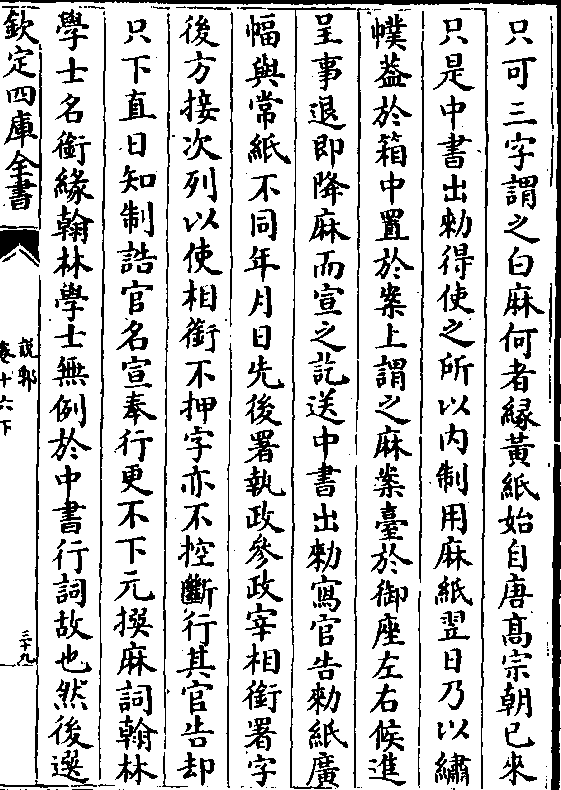 只可三字謂之白麻何者緣黃紙始自唐髙宗朝已來
只是中書出勑得使之所以内制用麻紙翌日乃以繡
幞葢於箱中置於案上謂之麻案臺於御座左右候進
呈事退即降麻而宣之訖送中書出勑寫官告勑紙廣
幅與常紙不同年月日先後署執政參政宰相銜署字
後方接次列以使相銜不押字亦不控斷行其官告却
只下直日知制誥官名宣奉行更不下元撰麻詞翰林
學士名銜緣翰林學士無例於中書行詞故也然後選
欽定四庫全書
說郛
卷十六下
三十九